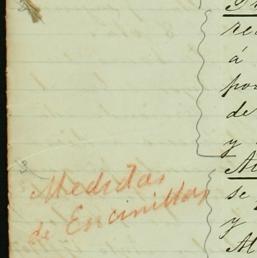 re
á
por
de
y
Medidas
de Encinillas
se
y